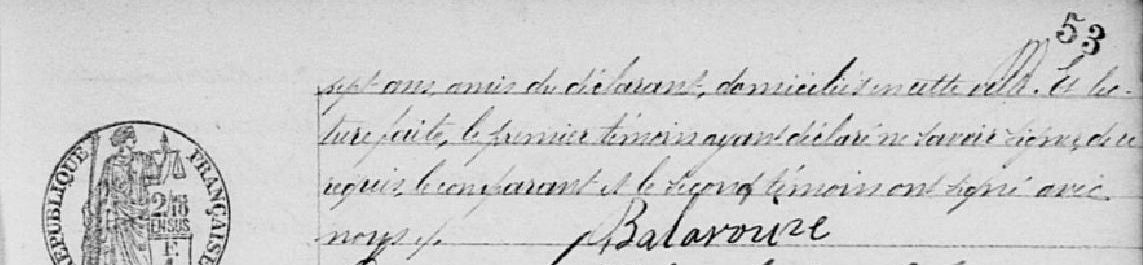 53
sept ans, amis du déclarant, domiciliés en cette ville. Et lec-
ture faite, le premier témoin ayant déclaré ne savoir signer, de ce
requis, le comparant et le second témoin ont signé avec
nous ./.
Balarouze
RÉPUBLIQUE FRANÇAISE
2/10
EN SUS